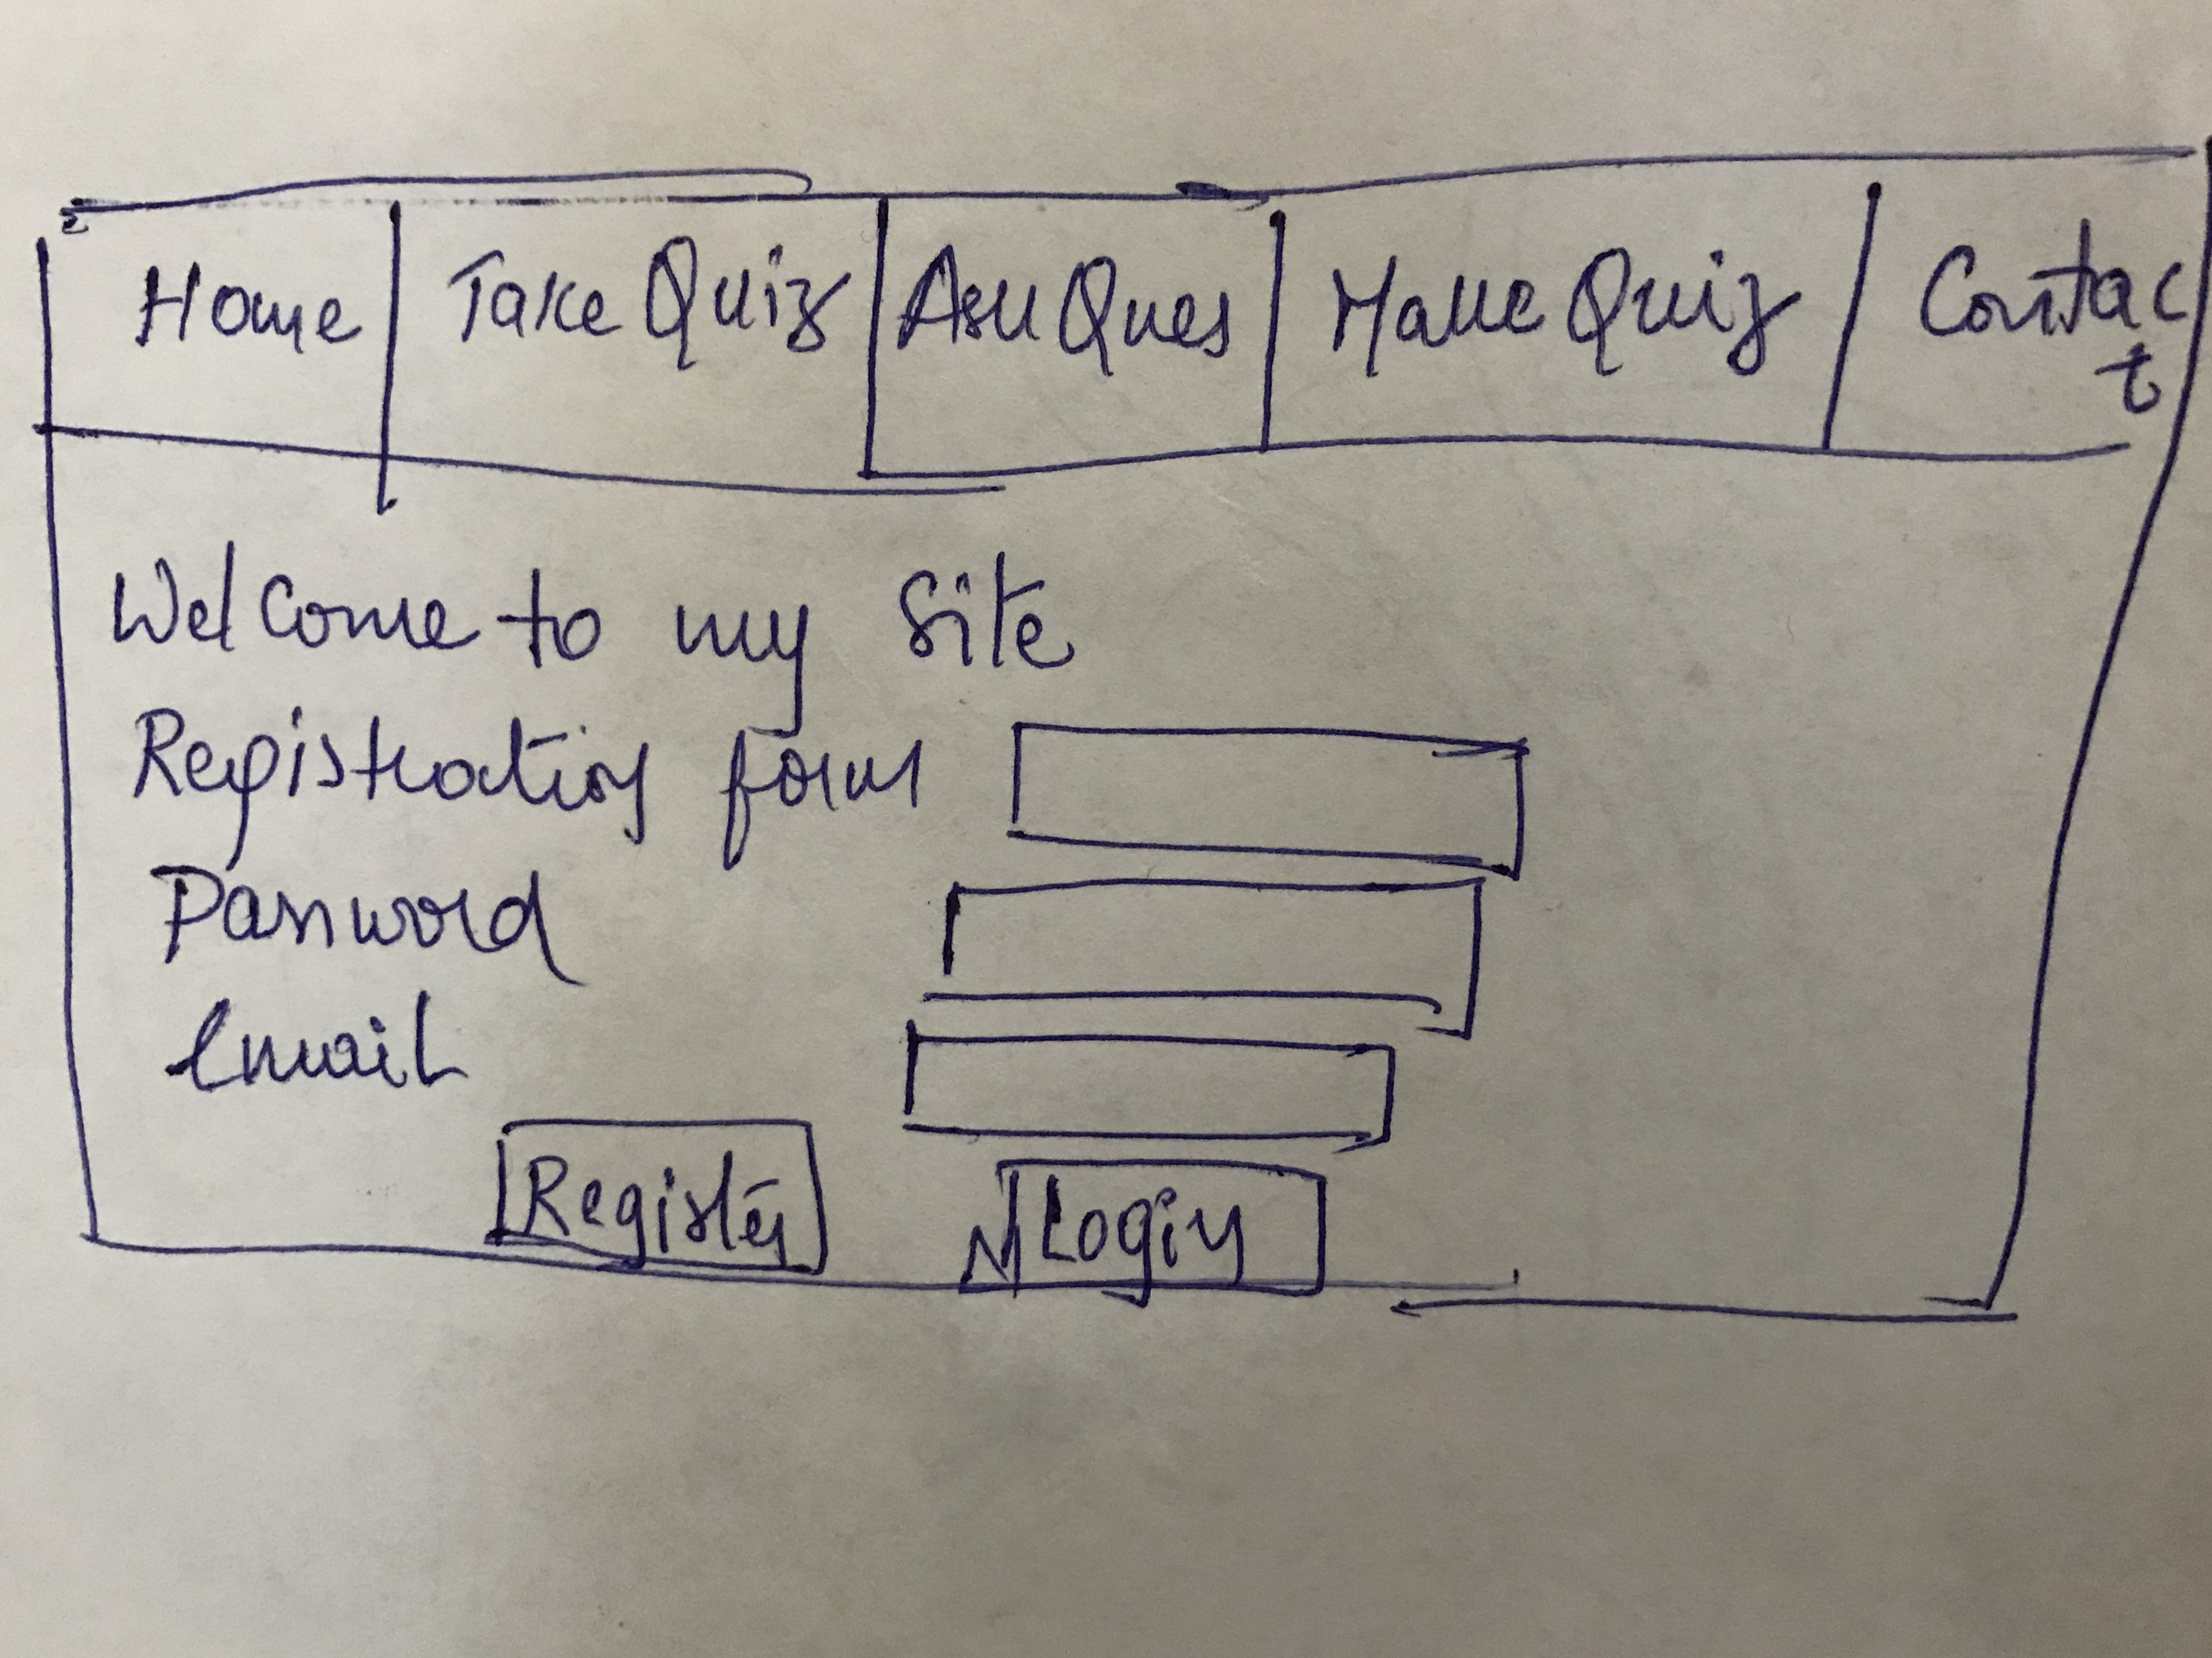 Home Take Quiz Ask Ques Make Quiz Contact
Welcome to my Site
Registration form
Password
Email
Register Login